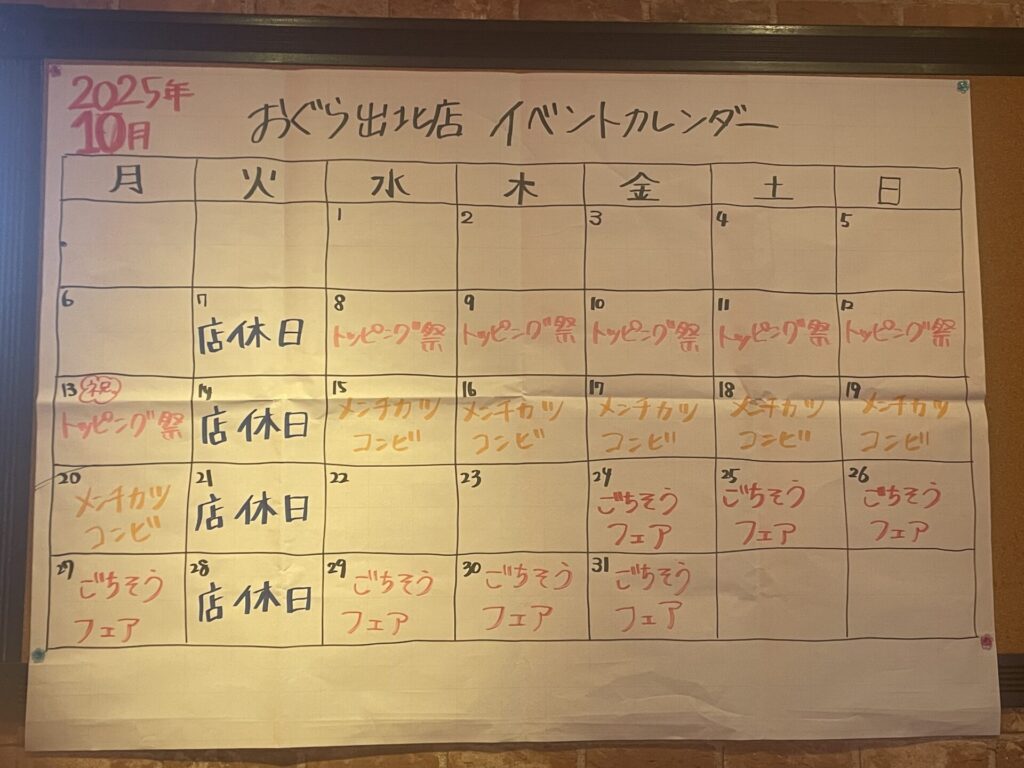 2025年
10月
おぐら出北店 イベントカレンダー
月 火 水 木 金 土 日
1 2 3 4 5
6 7 8 9 10 11 12
店休日 トッピング祭 トッピング祭 トッピング祭 トッピング祭 トッピング祭
13 祝 14 15 16 17 18 19
トッピング祭 店休日 メンチカツ メンチカツ メンチカツ メンチカツ メンチカツ
コンビ コンビ コンビ コンビ コンビ
20 21 22 23 24 25 26
メンチカツ 店休日 ごちそう ごちそう ごちそう
コンビ フェア フェア フェア
27 28 29 30 31
ごちそう 店休日 ごちそう ごちそう ごちそう
フェア フェア フェア フェア